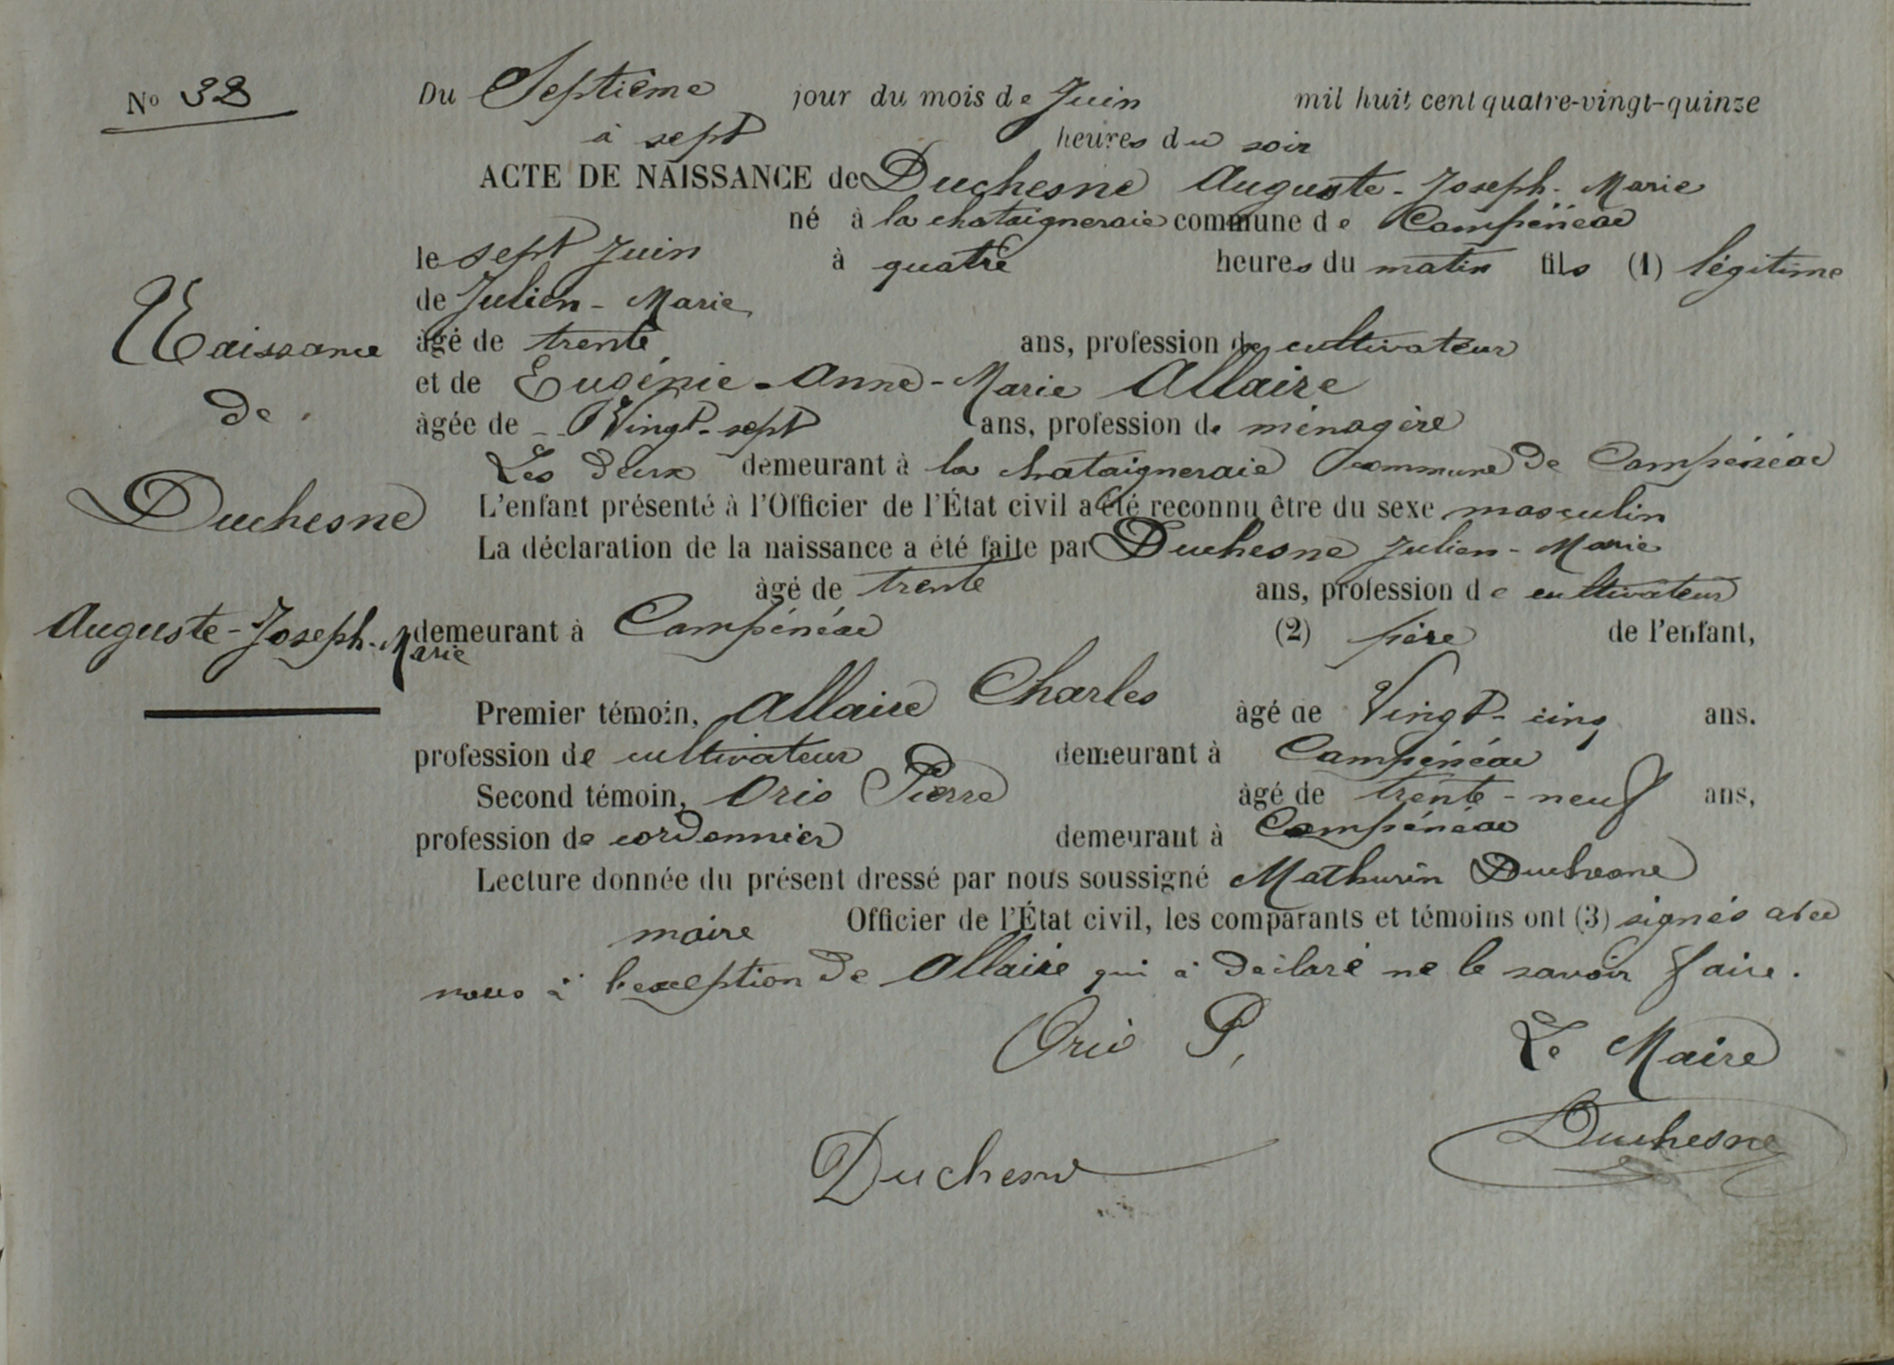 N° 32
Du Septième jour du mois de Juin mil huit cent quatre-vingt-quinze
à sept heures du soir
ACTE DE NAISSANCE de Duchesne Auguste-Joseph-Marie
né à la chataigneraie commune de Campénéac
le sept Juin à quatre heures du matin fils (1) légitime
de Julien-Marie
âgé de trente ans, profession de cultivateur
et de Eugénie-Anne-Marie Allaire
âgée de Vingt-sept ans, profession de ménagère
Les deux demeurant à la chataigneraie commune de Campénéac
L'enfant présenté à l'Officier de l'État civil a été reconnu être du sexe masculin
La déclaration de la naissance a été faite par Duchesne Julien-Marie
âgé de trente ans, profession de cultivateur
demeurant à Campénéac (2) père de l'enfant,
Premier témoin, Allaire Charles âgé de Vingt-cinq ans.
profession de cultivateur demeurant à Campénéac
Second témoin, Orio Pierre âgé de trente-neuf ans,
profession de cordonnier demeurant à Campénéac
Lecture donnée du présent dressé par nous soussigné Mathurin Duchesne
maire Officier de l'État civil, les comparants et témoins ont (3) signés avec
nous à l'exception de Allaire qui a déclaré ne le savoir faire.
Orio P, Le Maire
Duchesne
Duchesne
Naissance
de
Duchesne
Auguste-Joseph-
Marie